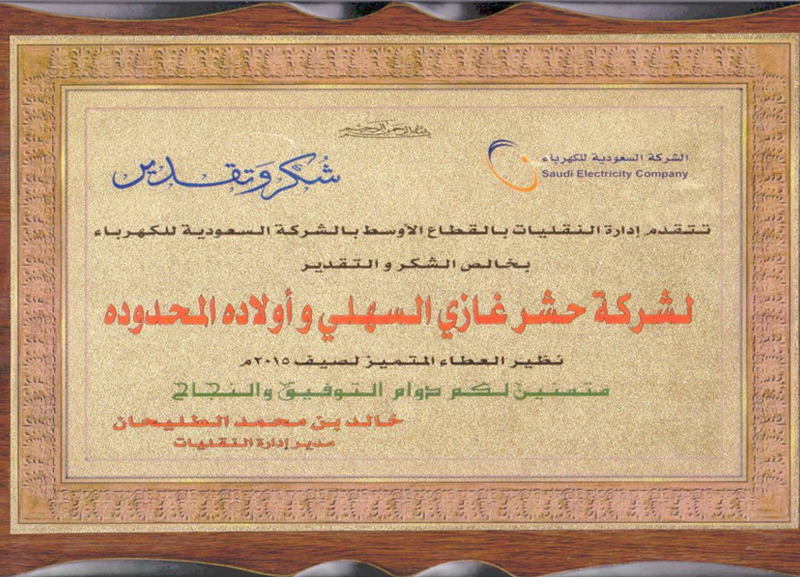 بسم الله الرحمن الرحيم
الشركة السعودية للكهرباء
Saudi Electricity Company
شكر وتقدير
تتقدم إدارة النقليات بالقطاع الأوسط بالشركة السعودية للكهرباء
بخالص الشكر و التقدير
لشركة حشر غازي السهلي و أولاده المحدوده
نظير العطاء المتميز لصيف ٢٠١٥م
متمنين لكم دوام التوفيق والنجاح
خالد بن محمد الطليحان
مدير إدارة النقليات